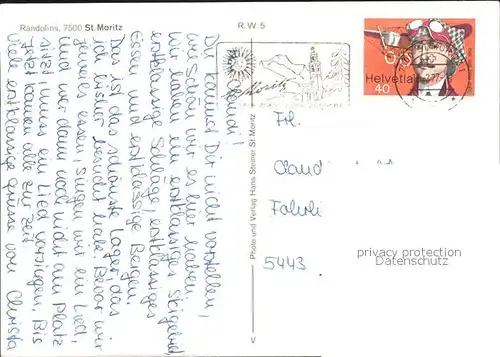 Randolins, 7500 St. Moritz
R.W. 5
Du kannst Dir nicht vorstellen,
wie schön wir es hier haben
wir haben ein erstklassiges Skigebiet,
erstklassige Schläge, erstklassiges
Essen und erstklassige Bergen.
Das ist das schönste Lager, das
ich bisher besucht habe. Bevor wir
jeweils essen, singen wir ein Lied,
und wer dann noch nicht am Platz
sitzt muss ein Lied vorsingen. Bis
jetzt kamen alle zur Zeit
Viele erstklassige grüsse von Christa
Photo und Verlag Hans Steiner St. Moritz
V
St. Moritz
Helvetia
40
Frl.
Claudi
5443
privacy protection
Datenschutz